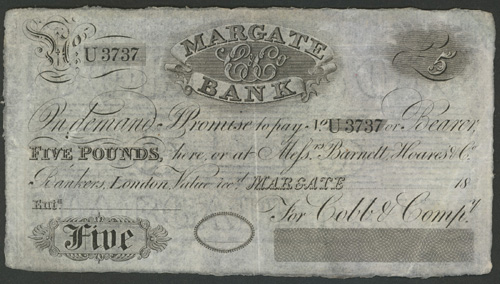 No U 3737
MARGATE
C&Co
BANK
5
On demand I Promise to pay No U 3737 or Bearer,
FIVE POUNDS, here, or at Messrs. Barnett, Hoares & Co.
Bankers, London, Value rec.d MARGATE 18
Ent.d
For Cobb & Comp.y
Five